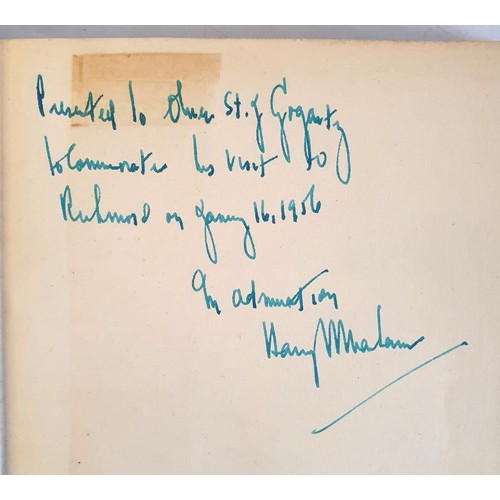 Presented to Oliver St. J Gogarty
to Commemorate his visit to
Richmond on January 16, 1956
In admiration
Harry